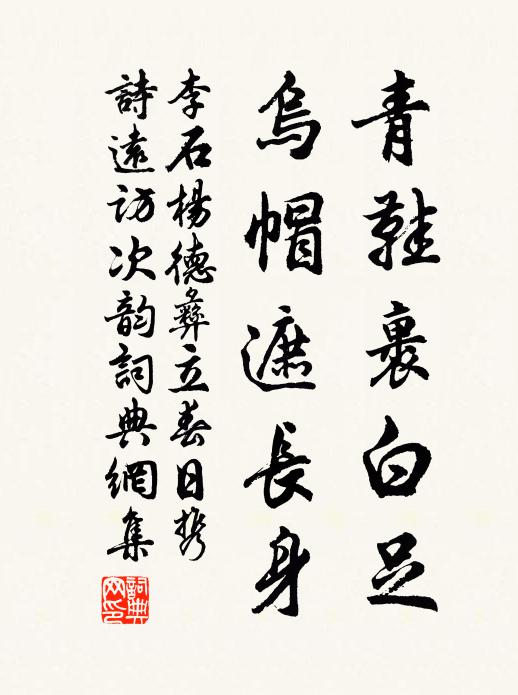 青鞋裹白足
烏帽遮長身
李石楊德彝立春日携
詩遠訪次韵詞典網集
詞典
网印